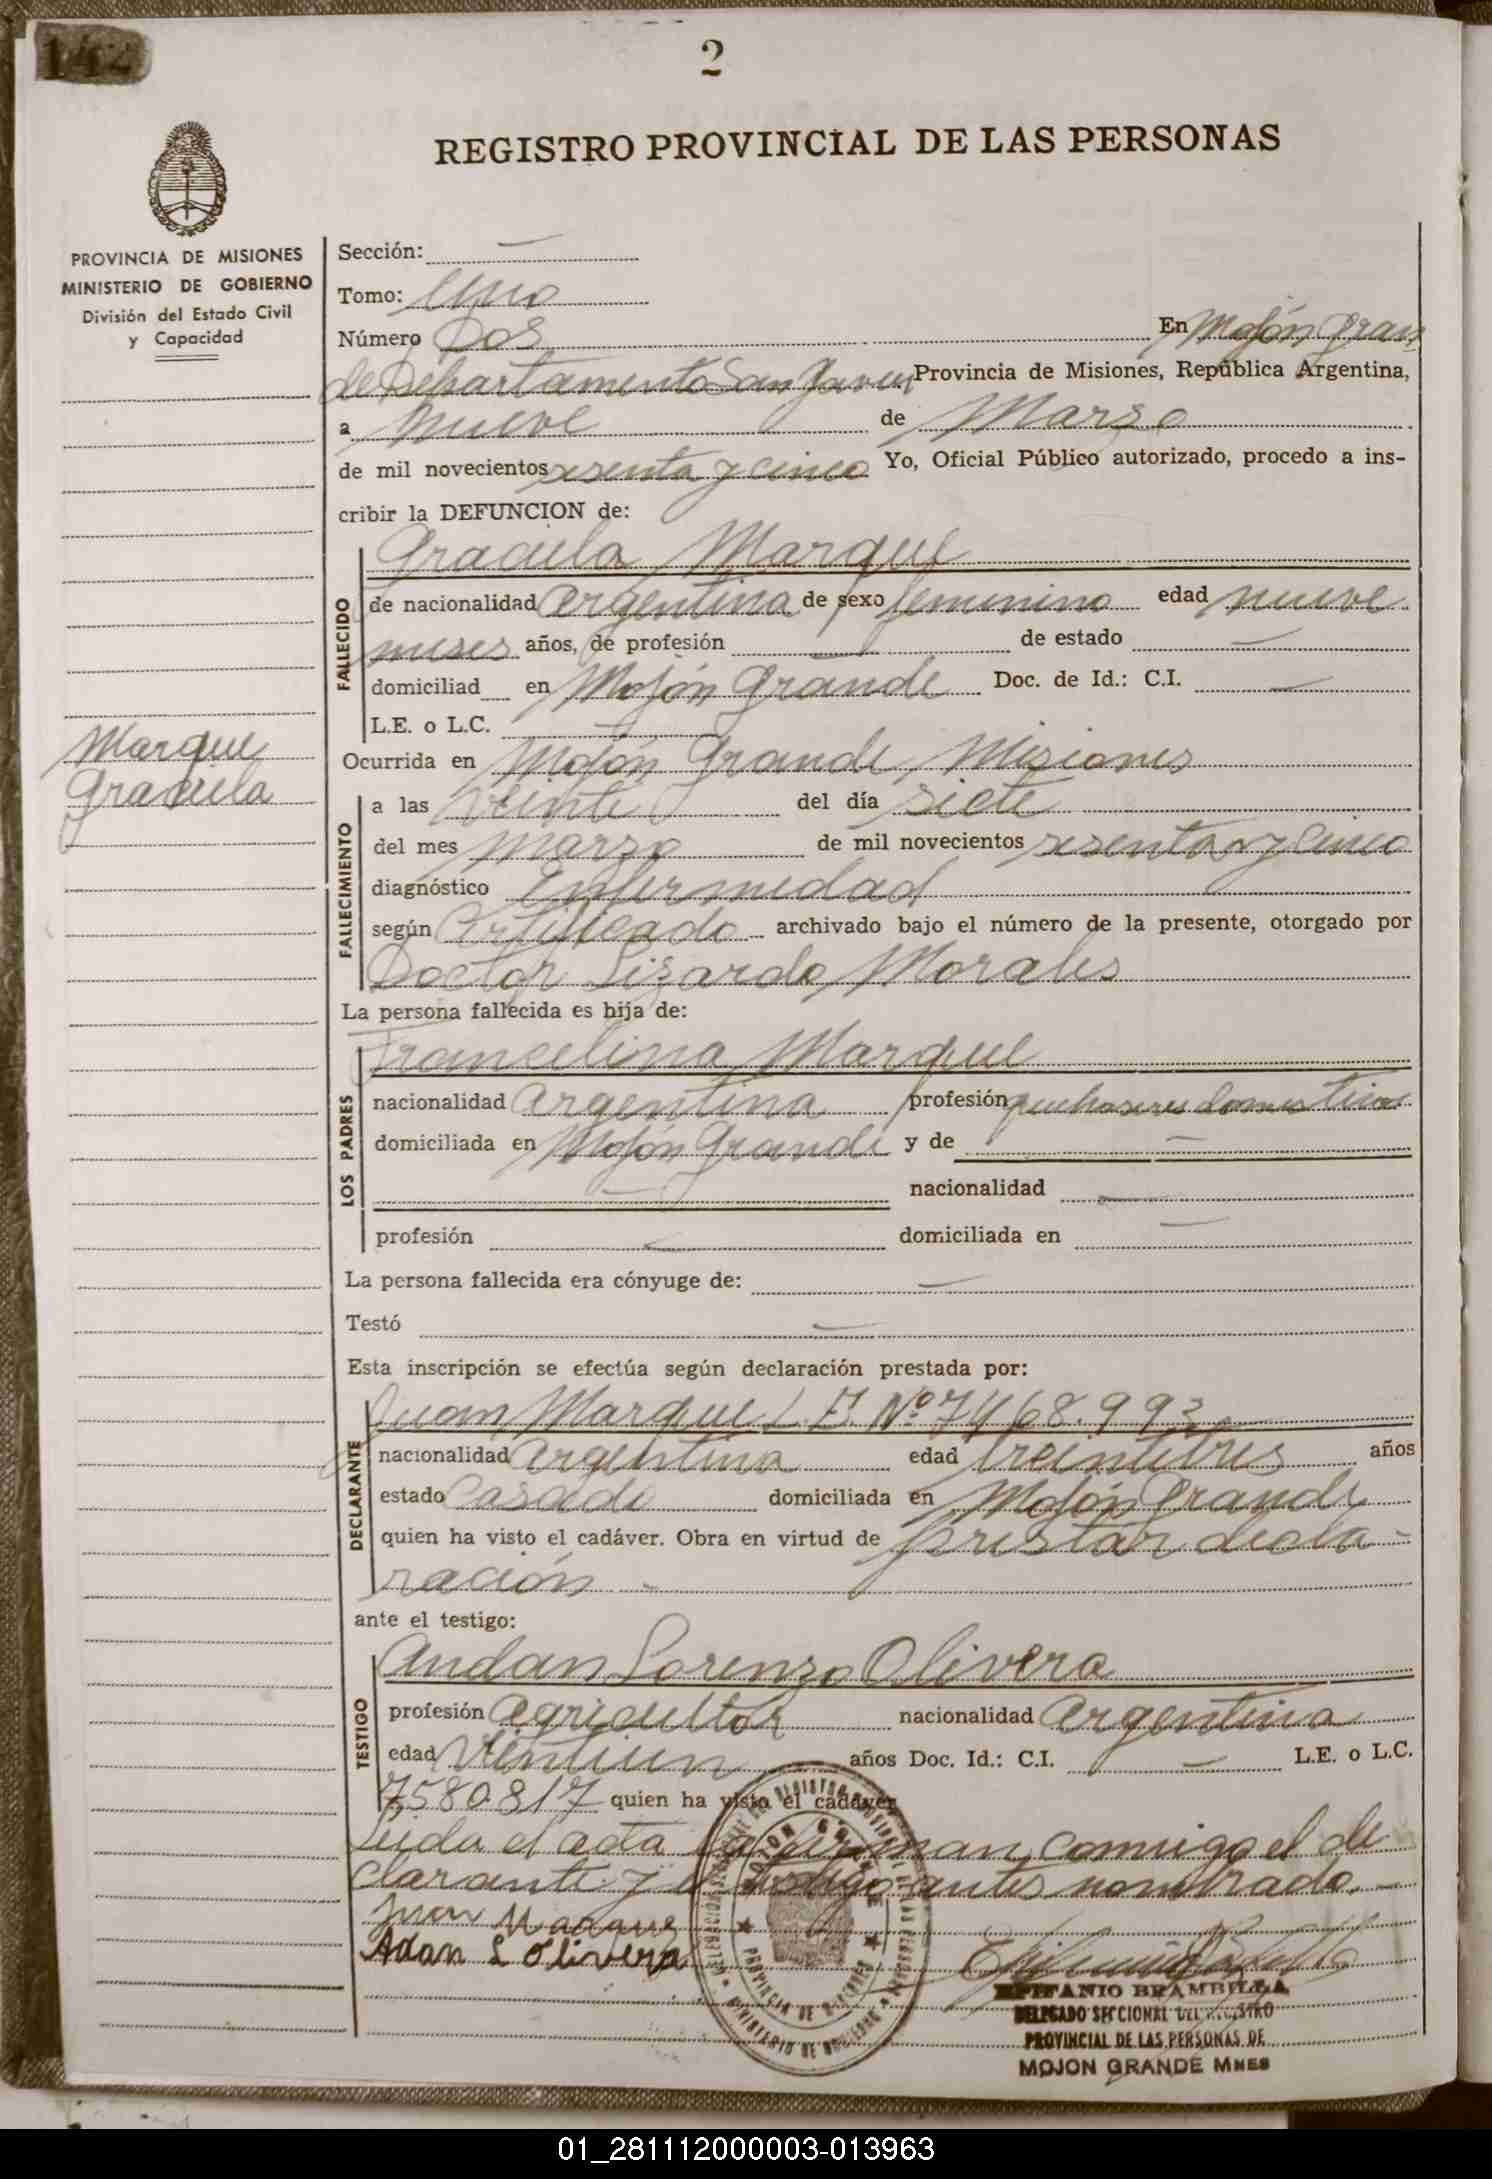 142
2
REGISTRO PROVINCIAL DE LAS PERSONAS
PROVINCIA DE MISIONES
MINISTERIO DE GOBIERNO
División del Estado Civil
y Capacidad
Marque
Graciela
Sección: —
Tomo: Uno
Número Dos En Mojón Gran
de Departamento San Javier Provincia de Misiones, República Argentina,
a nueve de Marzo
de mil novecientos sesenta y cinco Yo, Oficial Público autorizado, procedo a ins-
cribir la DEFUNCION de:
Graciela Marque
FALLECIDO
de nacionalidad Argentina de sexo femenino edad nueve
meses años, de profesión — de estado —
domiciliad en Mojón Grande Doc. de Id.: C.I. —
L.E. o L.C.
Ocurrida en Mojón Grande, Misiones
FALLECIMIENTO
a las veinte del día siete
del mes marzo de mil novecientos sesenta y cinco
diagnóstico Enfermedad
según Certificado archivado bajo el número de la presente, otorgado por
Doctor Lizardo Morales
La persona fallecida es hija de:
LOS PADRES
Francelina Marque
nacionalidad Argentina profesión quehaseres domesticos
domiciliada en Mojón Grande y de —
— nacionalidad —
profesión — domiciliada en —
La persona fallecida era cónyuge de: —
Testó —
Esta inscripción se efectúa según declaración prestada por:
DECLARANTE
Juan Marque L.E. Nº 7468.993
nacionalidad Argentina edad treintitres años
estado Casado domiciliada en Mojón Grande
quien ha visto el cadáver. Obra en virtud de prestar decla-
ración
ante el testigo:
TESTIGO
Andan Lorenzo Olivera
profesión Agricultor nacionalidad Argentina
edad Ventiun años Doc. Id.: C.I. — L.E. o L.C.
7580817 quien ha visto el cadáver
Leida el acta la firman comigo el de
clarante y el testigo antes nombrado.
Juan Marque
Adan L Olivera
MOJON GRANDE
PROVINCIA DE MISIONES
MINISTERIO DE GOBIERNO
EPIFANIO BRAMBILLA
DELEGADO SECCIONAL DEL REGISTRO
PROVINCIAL DE LAS PERSONAS DE
MOJON GRANDE MNES
01_281112000003-013963